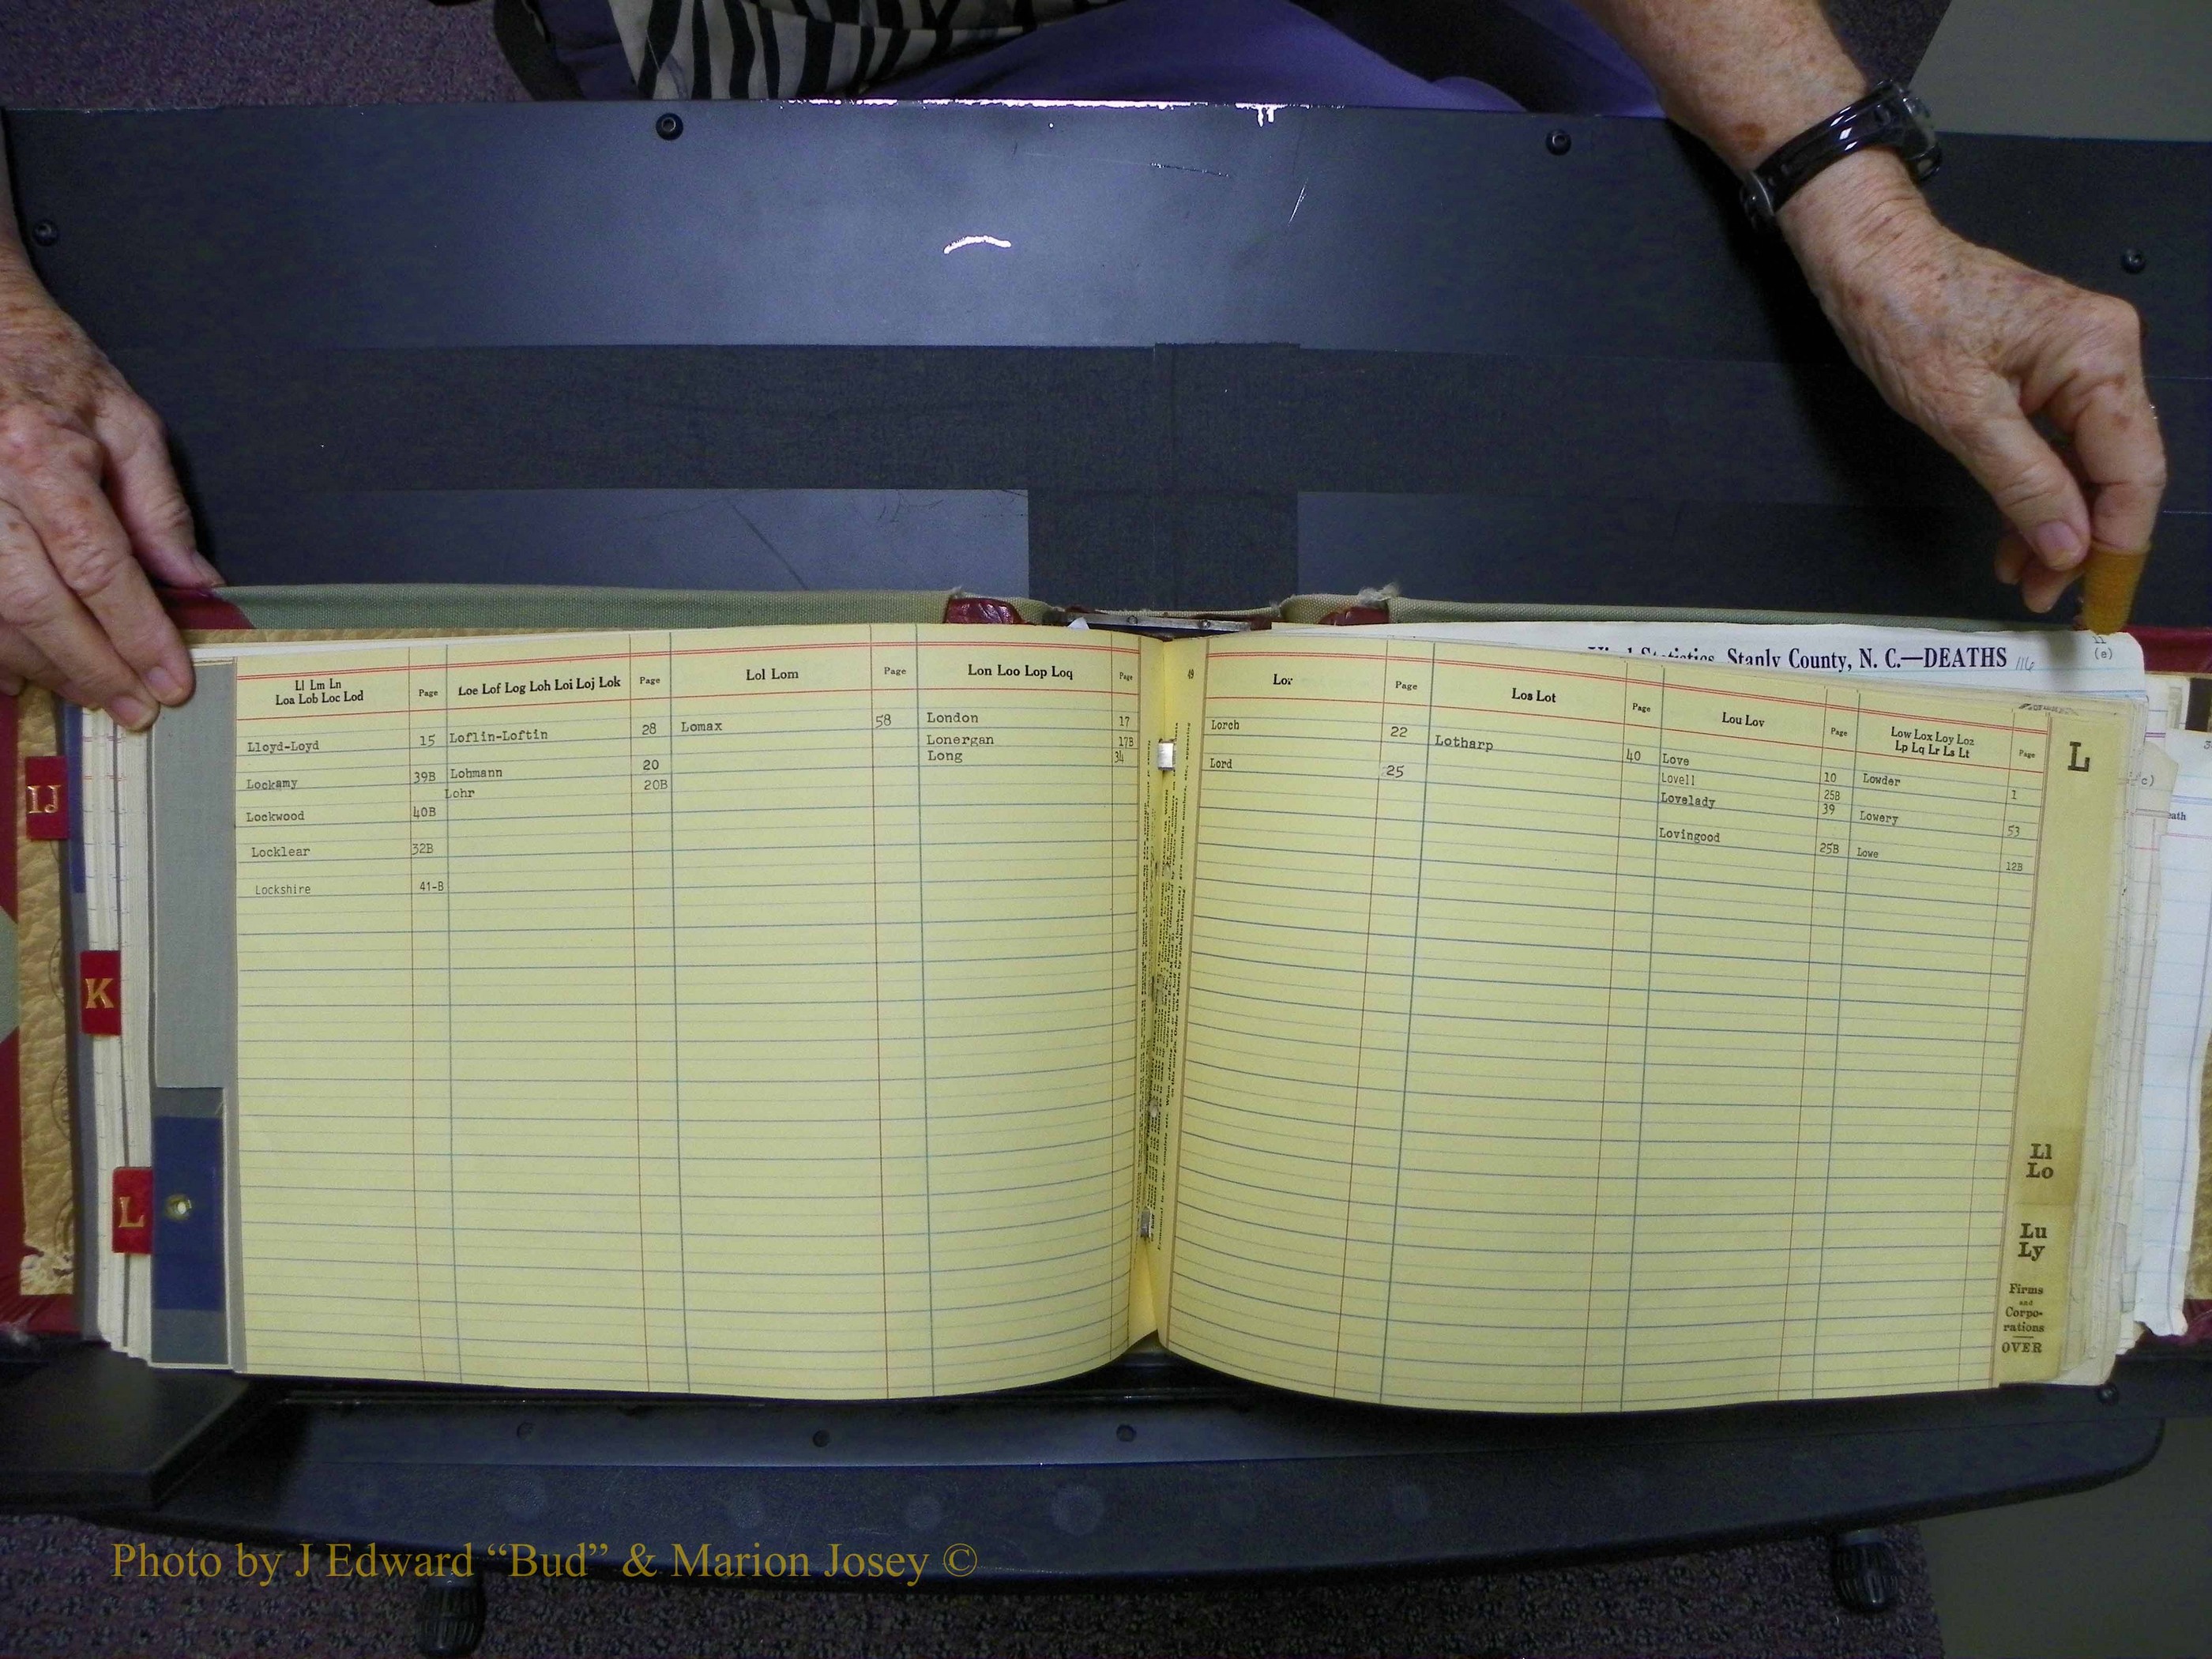 Vital Statistics, Stanly County, N. C.—DEATHS 116
(e)
Ll Lm Ln
Loa Lob Loc Lod
Page
Loe Lof Log Loh Loi Loj Lok
Page
Lol Lom
Page
Lon Loo Lop Loq
Page
Lloyd-Loyd 15
Lockamy 39B
Lockwood 40B
Locklear 32B
Lockshire 41-B
Loflin-Loftin 28
Lohmann 20
Lohr 20B
Lomax 58
London 17
Lonergan 17B
Long 34
49
Lor
Page
Los Lot
Page
Lou Lov
Page
Low Lox Loy Loz
Lp Lq Lr Ls Lt
Page
Lorch 22
Lord 25
Lotharp 40
Love 10
Lovell 25B
Lovelady 39
Lovingood 25B
Lowder 1
Lowery 53
Lowe 12B
L
Ll
Lo
Lu
Ly
Firms
and
Corpo-
rations
OVER
IJ
K
L
Photo by J Edward “Bud” & Marion Josey ©